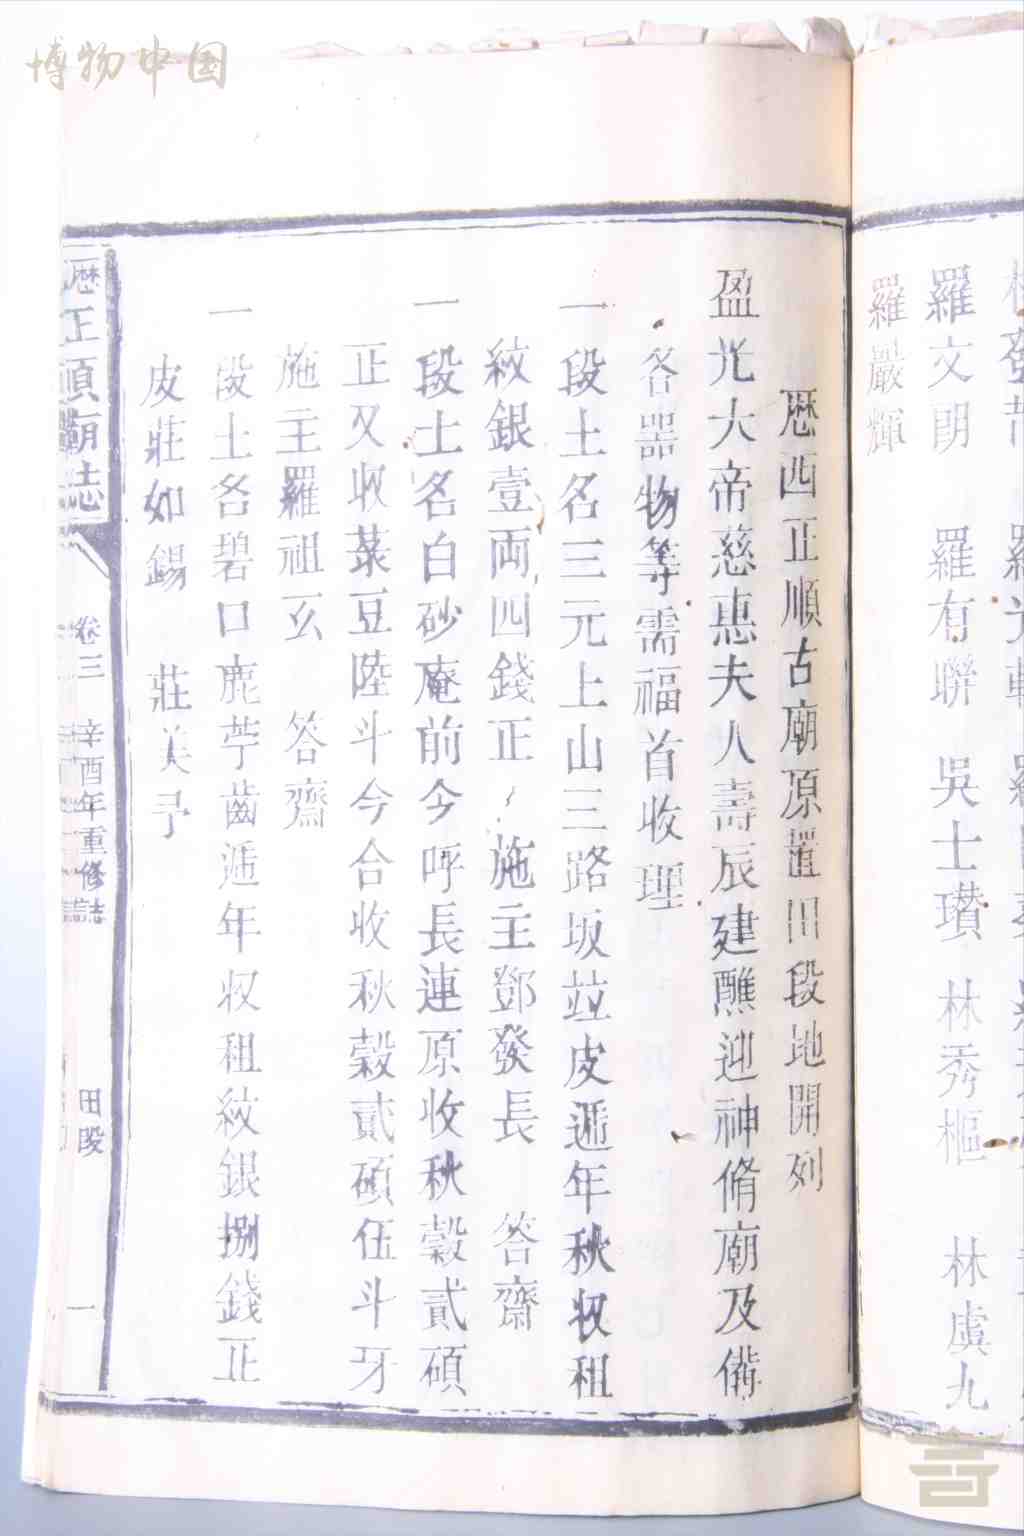 博物中国
羅文明 羅有聯 吳士瓚 林秀樞 林虞九
羅嚴輝
歷西正順古廟原置田段地開列
盈光大帝慈惠夫人壽辰建醮迎神脩廟及備
各器物等需福首收理
一段土名三元上山三路坂竝皮遞年秋収租
紋銀壹両四錢正 施主鄧發長 答齋
一段土名白砂庵前今呼長連原收秋穀貳碩
正又收菉豆陸斗今合收秋穀貳碩伍斗牙
施主羅祖玄 答齋
一段土名碧口鹿苧齒遞年収租紋銀捌錢正
皮莊如錫 莊美予
歷正順廟誌 卷三 辛酉年重修誌 田段 一